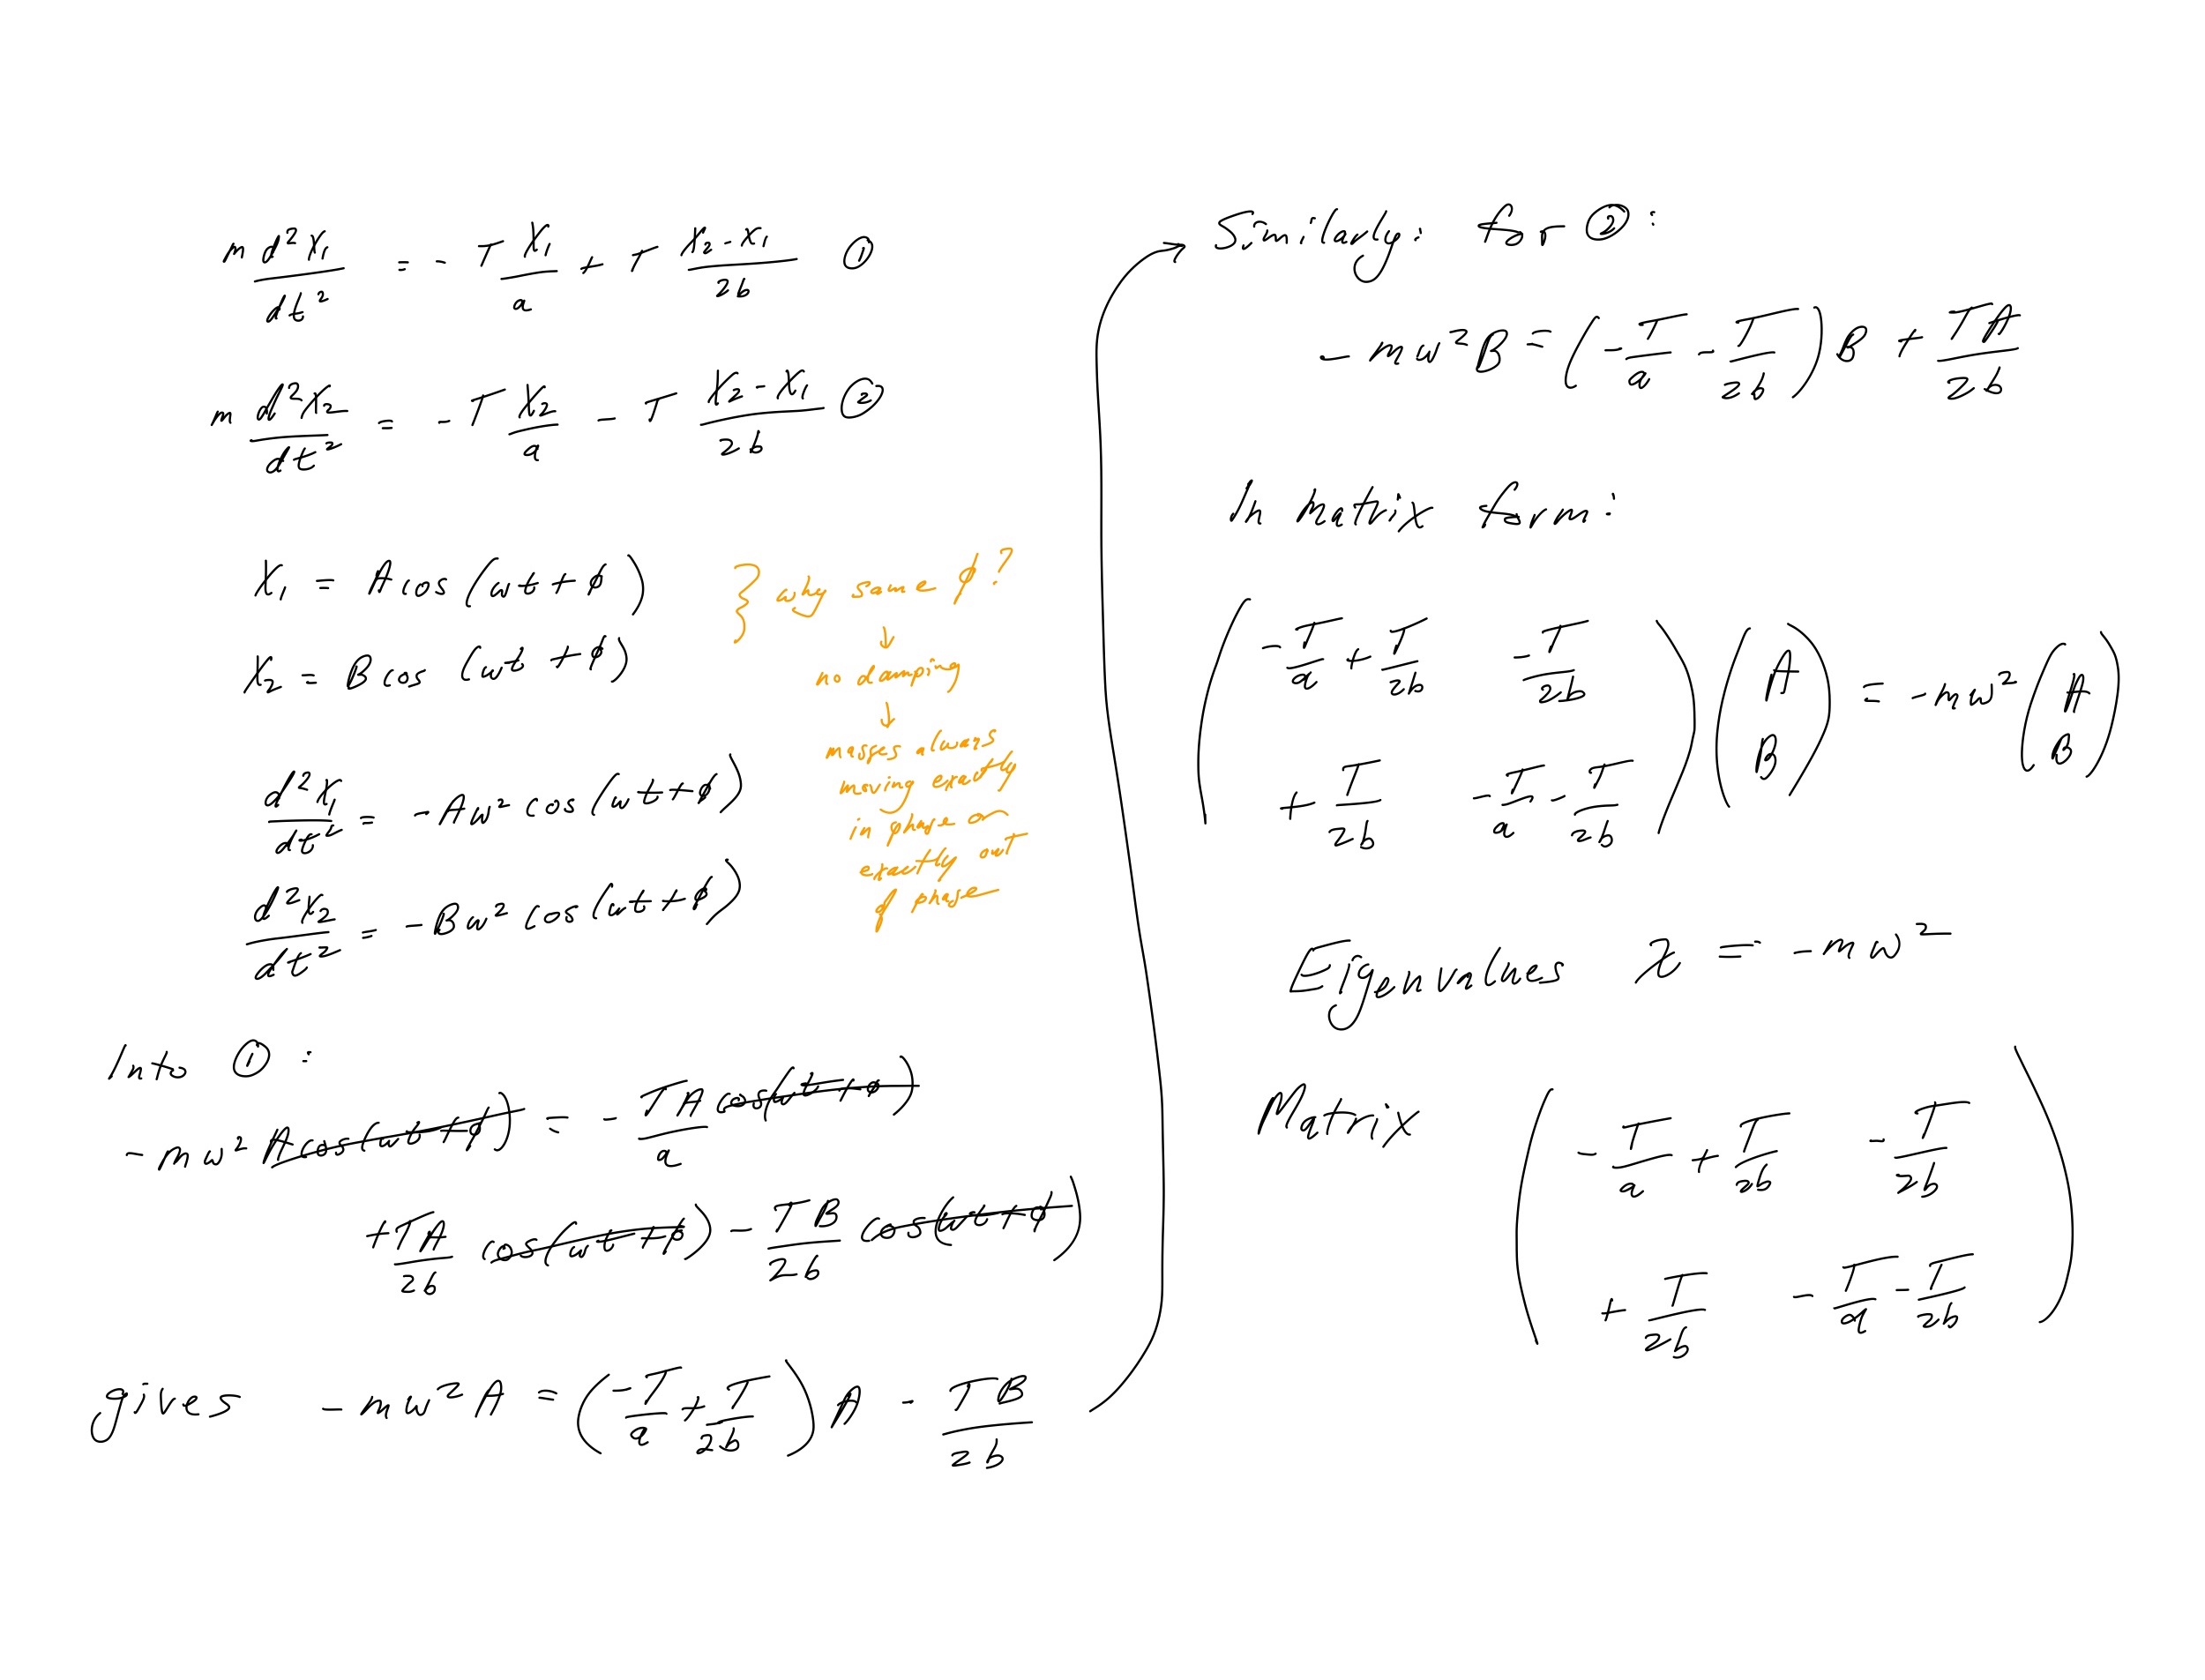 m d²X₁/dt² = - T X₁/a + T (X₂ - X₁)/2b ①
m d²X₂/dt² = - T X₂/a - T (X₂ - X₁)/2b ②
X₁ = A cos (ωt + φ)
X₂ = B cos (ωt + φ)
} why same φ?
↓
no damping
↓
masses always
moving exactly
in phase or
exactly out
of phase
d²X₁/dt² = - Aω² cos (ωt + φ)
d²X₂/dt² = - Bω² cos (ωt + φ)
Into ① :
- mω² A cos(ωt + φ) = - TA/a cos(ωt + φ)
+ TA/2b cos(ωt + φ) - TB/2b cos(ωt + φ)
gives - mω² A = (-T/a + T/2b) A - TB/2b
→ Similarly: for ② :
- mω² B = (-T/a - T/2b) B + TA/2b
In matrix form:
( -T/a + T/2b   -T/2b ) ( A ) = - mω² ( A )
( + T/2b   -T/a - T/2b ) ( B )   ( B )
Eigenvalues λ = - mω²
Matrix ( -T/a + T/2b   -T/2b )
( + T/2b   -T/a - T/2b )